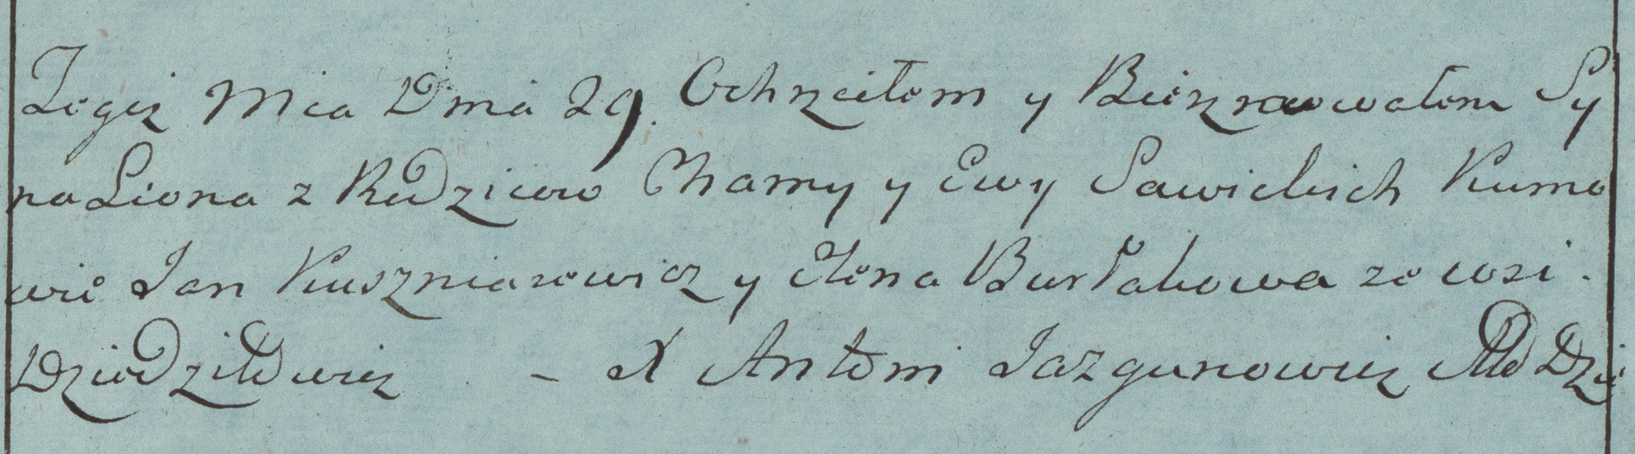 Tegoż Mca Dnia 29. Ochrzciłem y Bierzmowałem Sy
na Liona z Rodzicow Chamy y Ewy Sawickich Kumo
wie Jan Kuszniarewicz y Elena Burłakowa ze wsi.
Dziedziłowicz - X Antoni Jazgunowicz Dzie